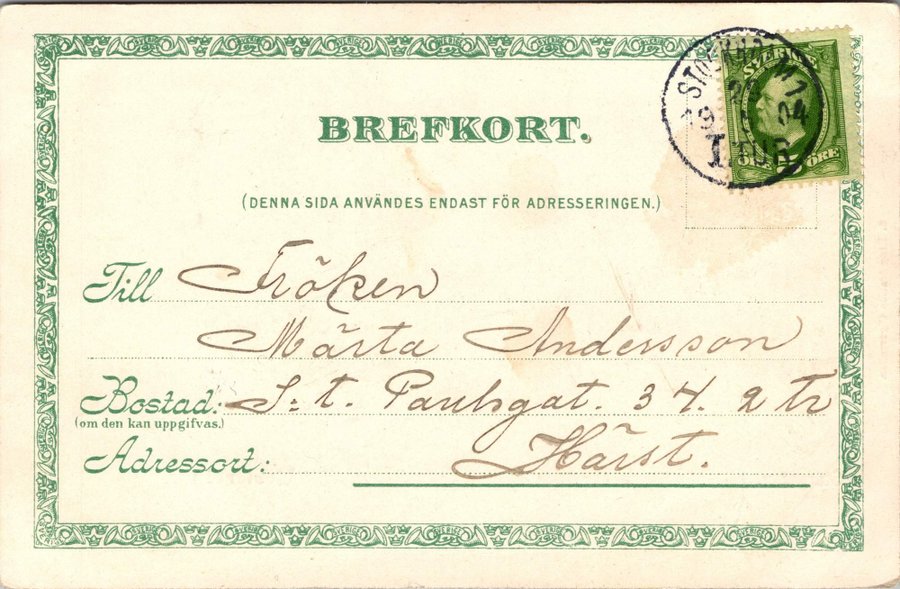 BREFKORT.
(DENNA SIDA ANVÄNDES ENDAST FÖR ADRESSERINGEN.)
SVERIGE
STOCKHOLM 1
19 04
1. TUR
ÖRE
Till Fröken
Märta Andersson
Bostad: S:t. Paulsgat. 34. 2 tr
(om den kan uppgifvas.)
Adressort: Härst.